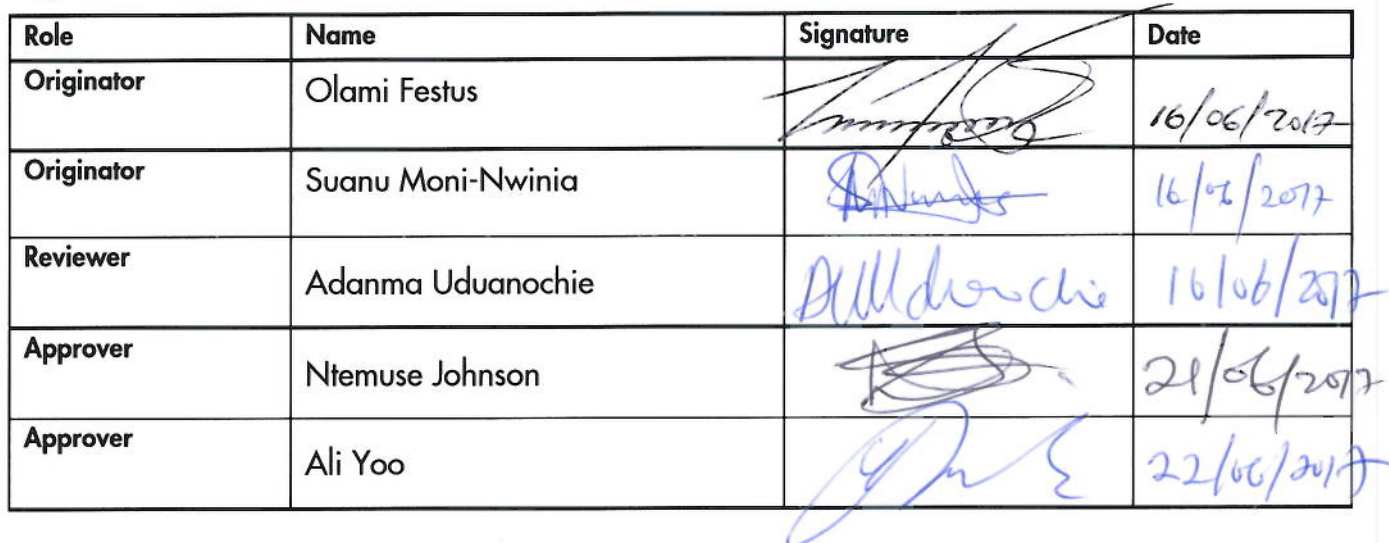 Role Name Signature Date
Originator Olami Festus 16/06/2017
Originator Suanu Moni-Nwinia 16/06/2017
Reviewer Adanma Uduanochie 16/06/2017
Approver Ntemuse Johnson 21/06/2017
Approver Ali Yoo 22/06/2017